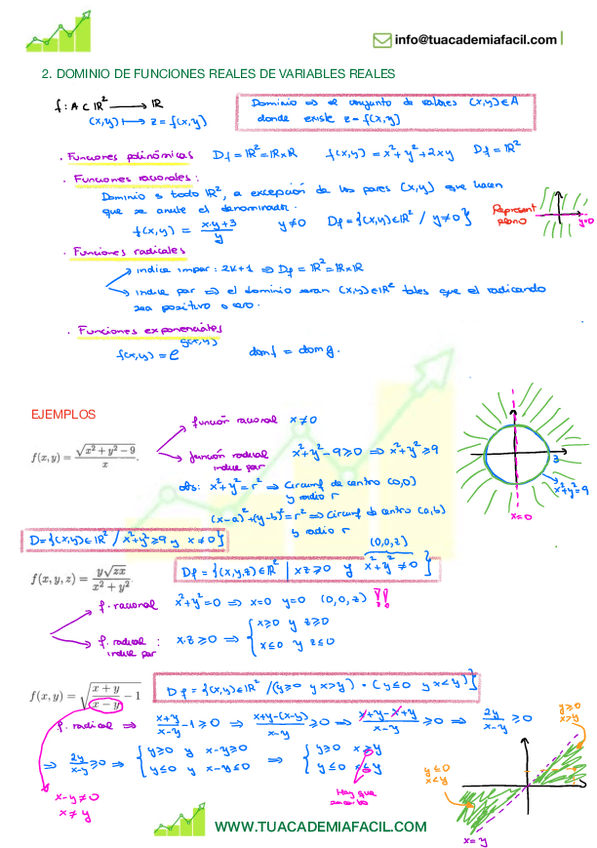 info@tuacademiafacil.com
2. DOMINIO DE FUNCIONES REALES DE VARIABLES REALES
f: A ⊂ ℝ² ⟶ ℝ
(x,y) ⟼ z = f(x,y)
Dominio ⇒ el conjunto de valores (x,y) ∈ A
donde existe z = f(x,y)
· Funciones polinómicas Df = ℝ² = ℝxℝ f(x,y) = x²+y²+2xy Df = ℝ²
· Funciones racionales:
Dominio es todo ℝ², a excepción de los pares (x,y) que hacen
que se anule el denominador.
f(x,y) = (x·y+3)/y y≠0 Df = {(x,y) ∈ ℝ² / y≠0}
Represent
plano
y=0
· Funciones radicales
indice impar: 2k+1 ⇒ Df = ℝ² = ℝxℝ
indice par ⇒ el dominio seran (x,y) ∈ ℝ² tales que el radicando
sea positivo o cero.
· Funciones exponenciales
f(x,y) = e^g(x,y) domf = domg.
EJEMPLOS
función racional x≠0
f(x,y) = √(x²+y²−9)/x.
función radical x²+y²−9≥0 ⇒ x²+y²≥9
indice par
obs: x²+y²=r² ⇒ Circunf de centro (0,0)
y radio r
(x−a)²+(y−b)²=r² ⇒ Circunf de centro (a,b)
y radio r
3
x²+y²=9
x=0
D={(x,y)∈ℝ² / x²+y²≥9 y x≠0}
(0,0,z)
f(x,y,z) = y√(zx)/(x²+y²).
Df = {(x,y,z)∈ℝ³ | xz≥0 y x²+y²≠0}
f. racional x²+y²=0 ⇒ x=0 y=0 (0,0,z) !!
f. radical : x·z≥0 ⇒ { x≥0 y z≥0
indice par x≤0 y z≤0
f(x,y) = √((x+y)/(x−y) − 1)
Df = {(x,y)∈ℝ² / (y≥0 y x>y) o (y≤0 y x<y)}
f. radical ⇒ (x+y)/(x−y) − 1 ≥ 0 ⇒ (x+y−(x−y))/(x−y) ≥ 0 ⇒ (x+y−x+y)/(x−y) ≥ 0 ⇒ 2y/(x−y) ≥ 0
y≥0
x>y
⇒ 2y/(x−y) ≥ 0 ⇒ { y≥0 y x−y≥0 ⇒ { y≥0 x≥y
y≤0 y x−y≤0 y≤0 x≤y
y≤0
x<y
x−y≠0
x≠y
Hay que
x=y
WWW.TUACADEMIAFACIL.COM